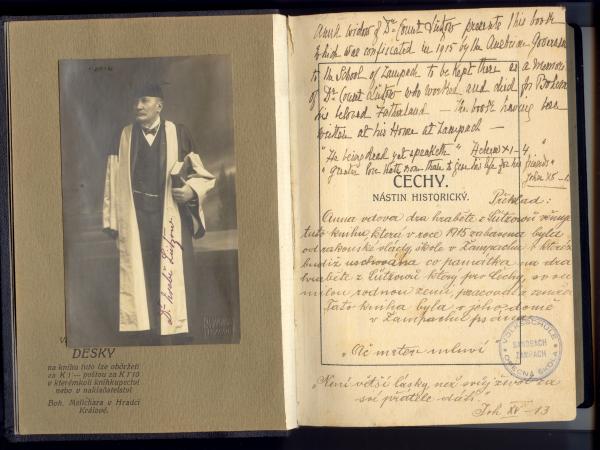 Dr hrabě Lützow
DESKY
na knihu tuto lze obdržeti
za K 1·— poštou za K 1·10
v kterémkoli knihkupectví
nebo v nakladatelství
Boh. Melichara v Hradci
Králové.
Anna widow of Dr. Count Lützow presents this book
which was confiscated in 1915 by the Austrian Government
to the School of Zampach to be kept there as a Memory
of Dr. Count Lützow who worked and died for Bohemia
his beloved Fatherland — The book having been
written at his Home at Zampach —
"He being dead yet speaketh" Hebrew XI - 4
"Greater love hath no man than to give his life for his friends"
John XV - 13
ČECHY.
NÁSTIN HISTORICKÝ.
Překlad:
Anna vdova dra hraběte z Lützowů věnuje
tuto knihu, která v roce 1915 zabavena byla
od rakouské vlády, škole v Žampachu, kteráž
budiž uschována co památka na dra
hraběte z Lützowů, který pro Čechy, svou
milou rodnou zemi, pracoval a zemřel.
Tato kniha byla v jeho domě
v Žampachu psána.
„Ač mrtev mluví
„Není větší lásky, než svůj život za
své přátele dáti."
Joh XV - 13
VOLKSSCHULE
SANDBACH
ŽAMPACH
OBECNÁ ŠKOLA